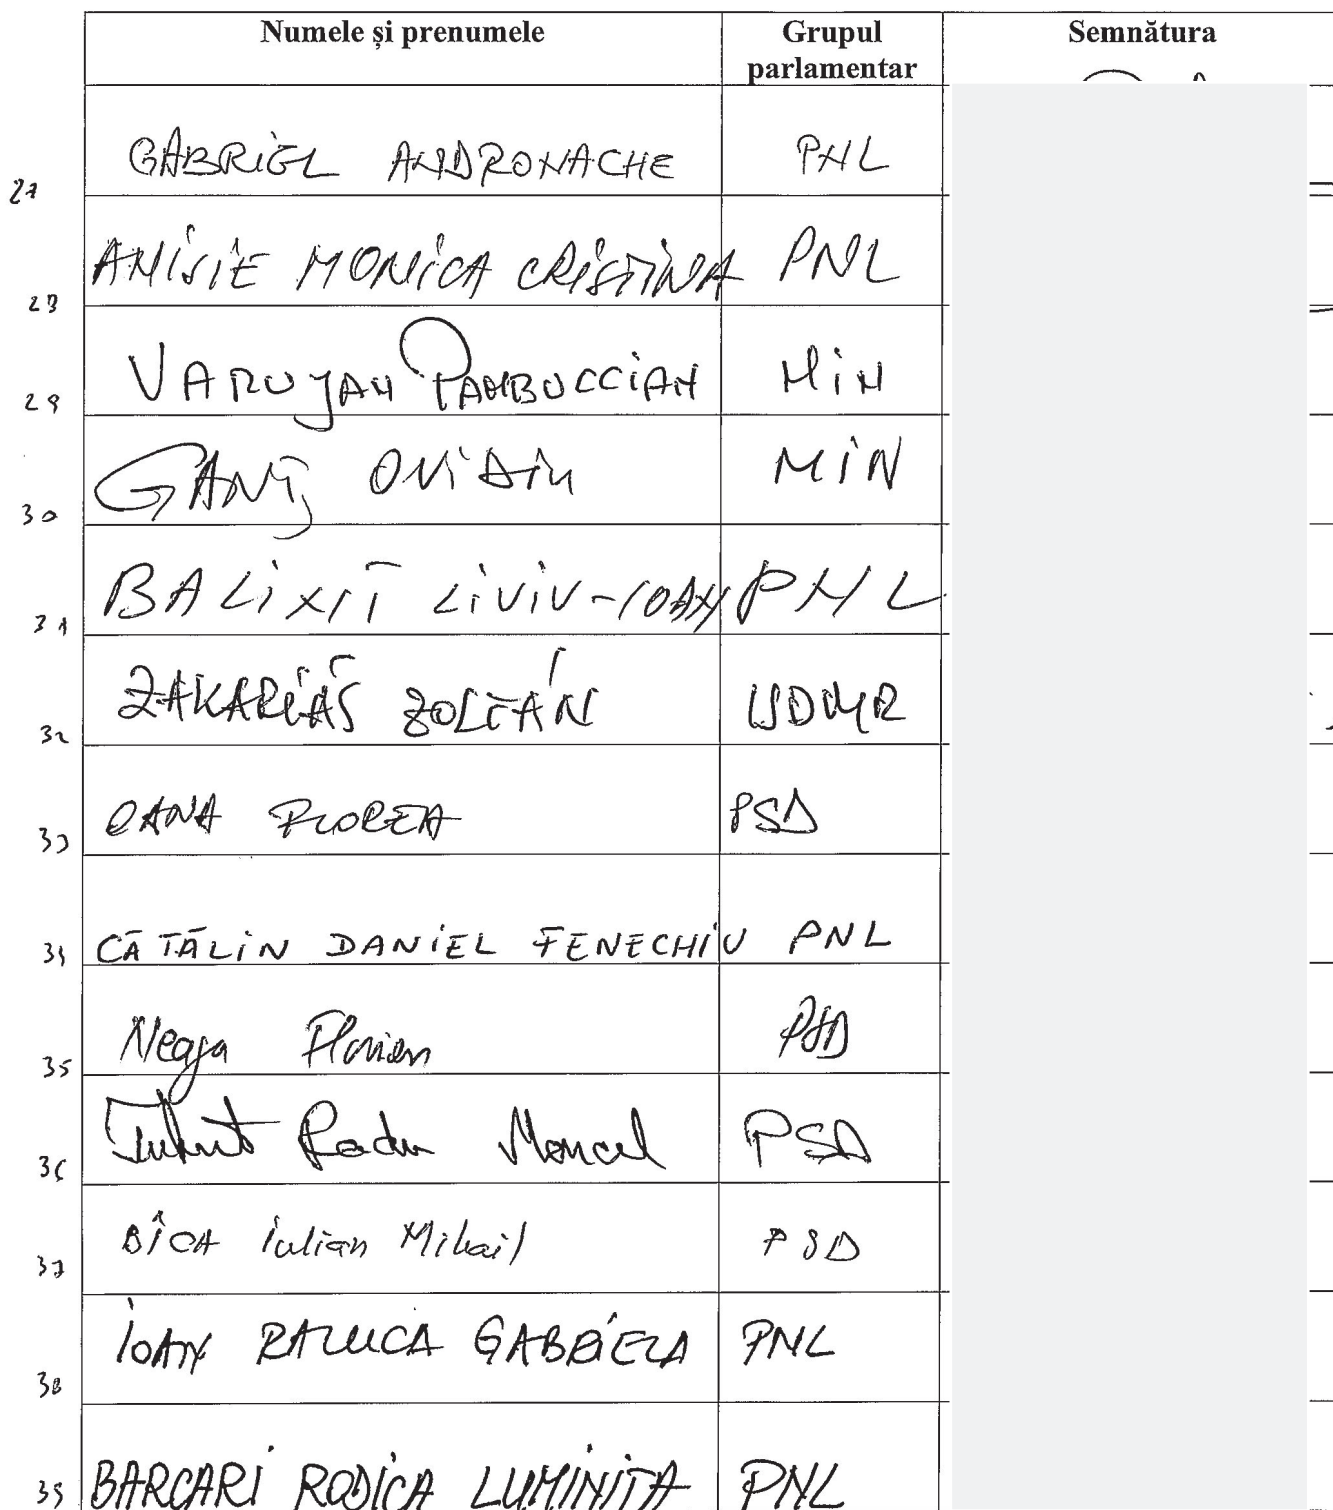 Numele și prenumele Grupul parlamentar Semnătura
27 GABRIEL ANDRONACHE PNL
28 ANISIE MONICA CRISTINA PNL
29 VARUJAN PAMBUCCIAN MIN
30 GANȚ OVIDIU MIN
31 BALINT LIVIU-IOAN PNL
32 ZAKARIÁS ZOLTÁN UDMR
33 OANA FLOREA PSD
34 CĂTĂLIN DANIEL FENECHIU PNL
35 Neaga Florian PSD
36 Radu Marcel PSD
37 BÎCA Iulian Mihail PSD
38 IOAN RALUCA GABRIELA PNL
39 BARCARI RODICA LUMINITA PNL